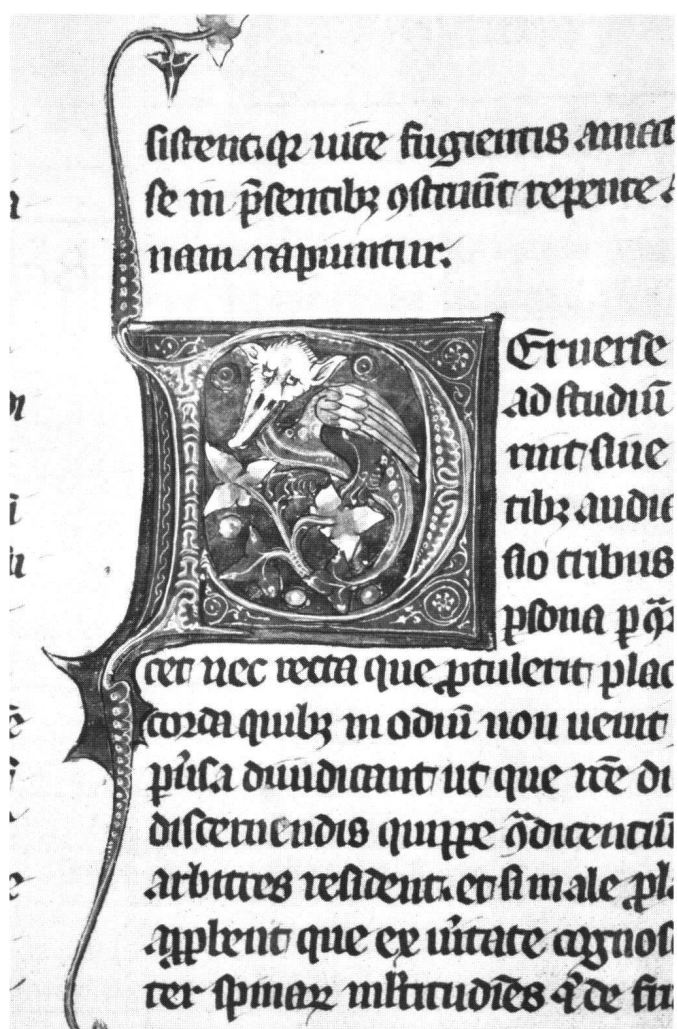 uite fugientis amat
se in p̄sentibꝫ ꝯstruūt repente
nam rapiuntur.
PEruerse
ad studiū
runt siue
tibꝫ audie
sio tribus
ꝑsona ꝑ
cet nec recta que ꝓtulerit plac
corda quibꝫ in odiū non uenit
diiudicant ut que rc̄e di
discernendis quippe ꝯdicentiū
arbitres resident. et si male ꝓl
que ex ueritate cognos
ter spinaꝝ de fu